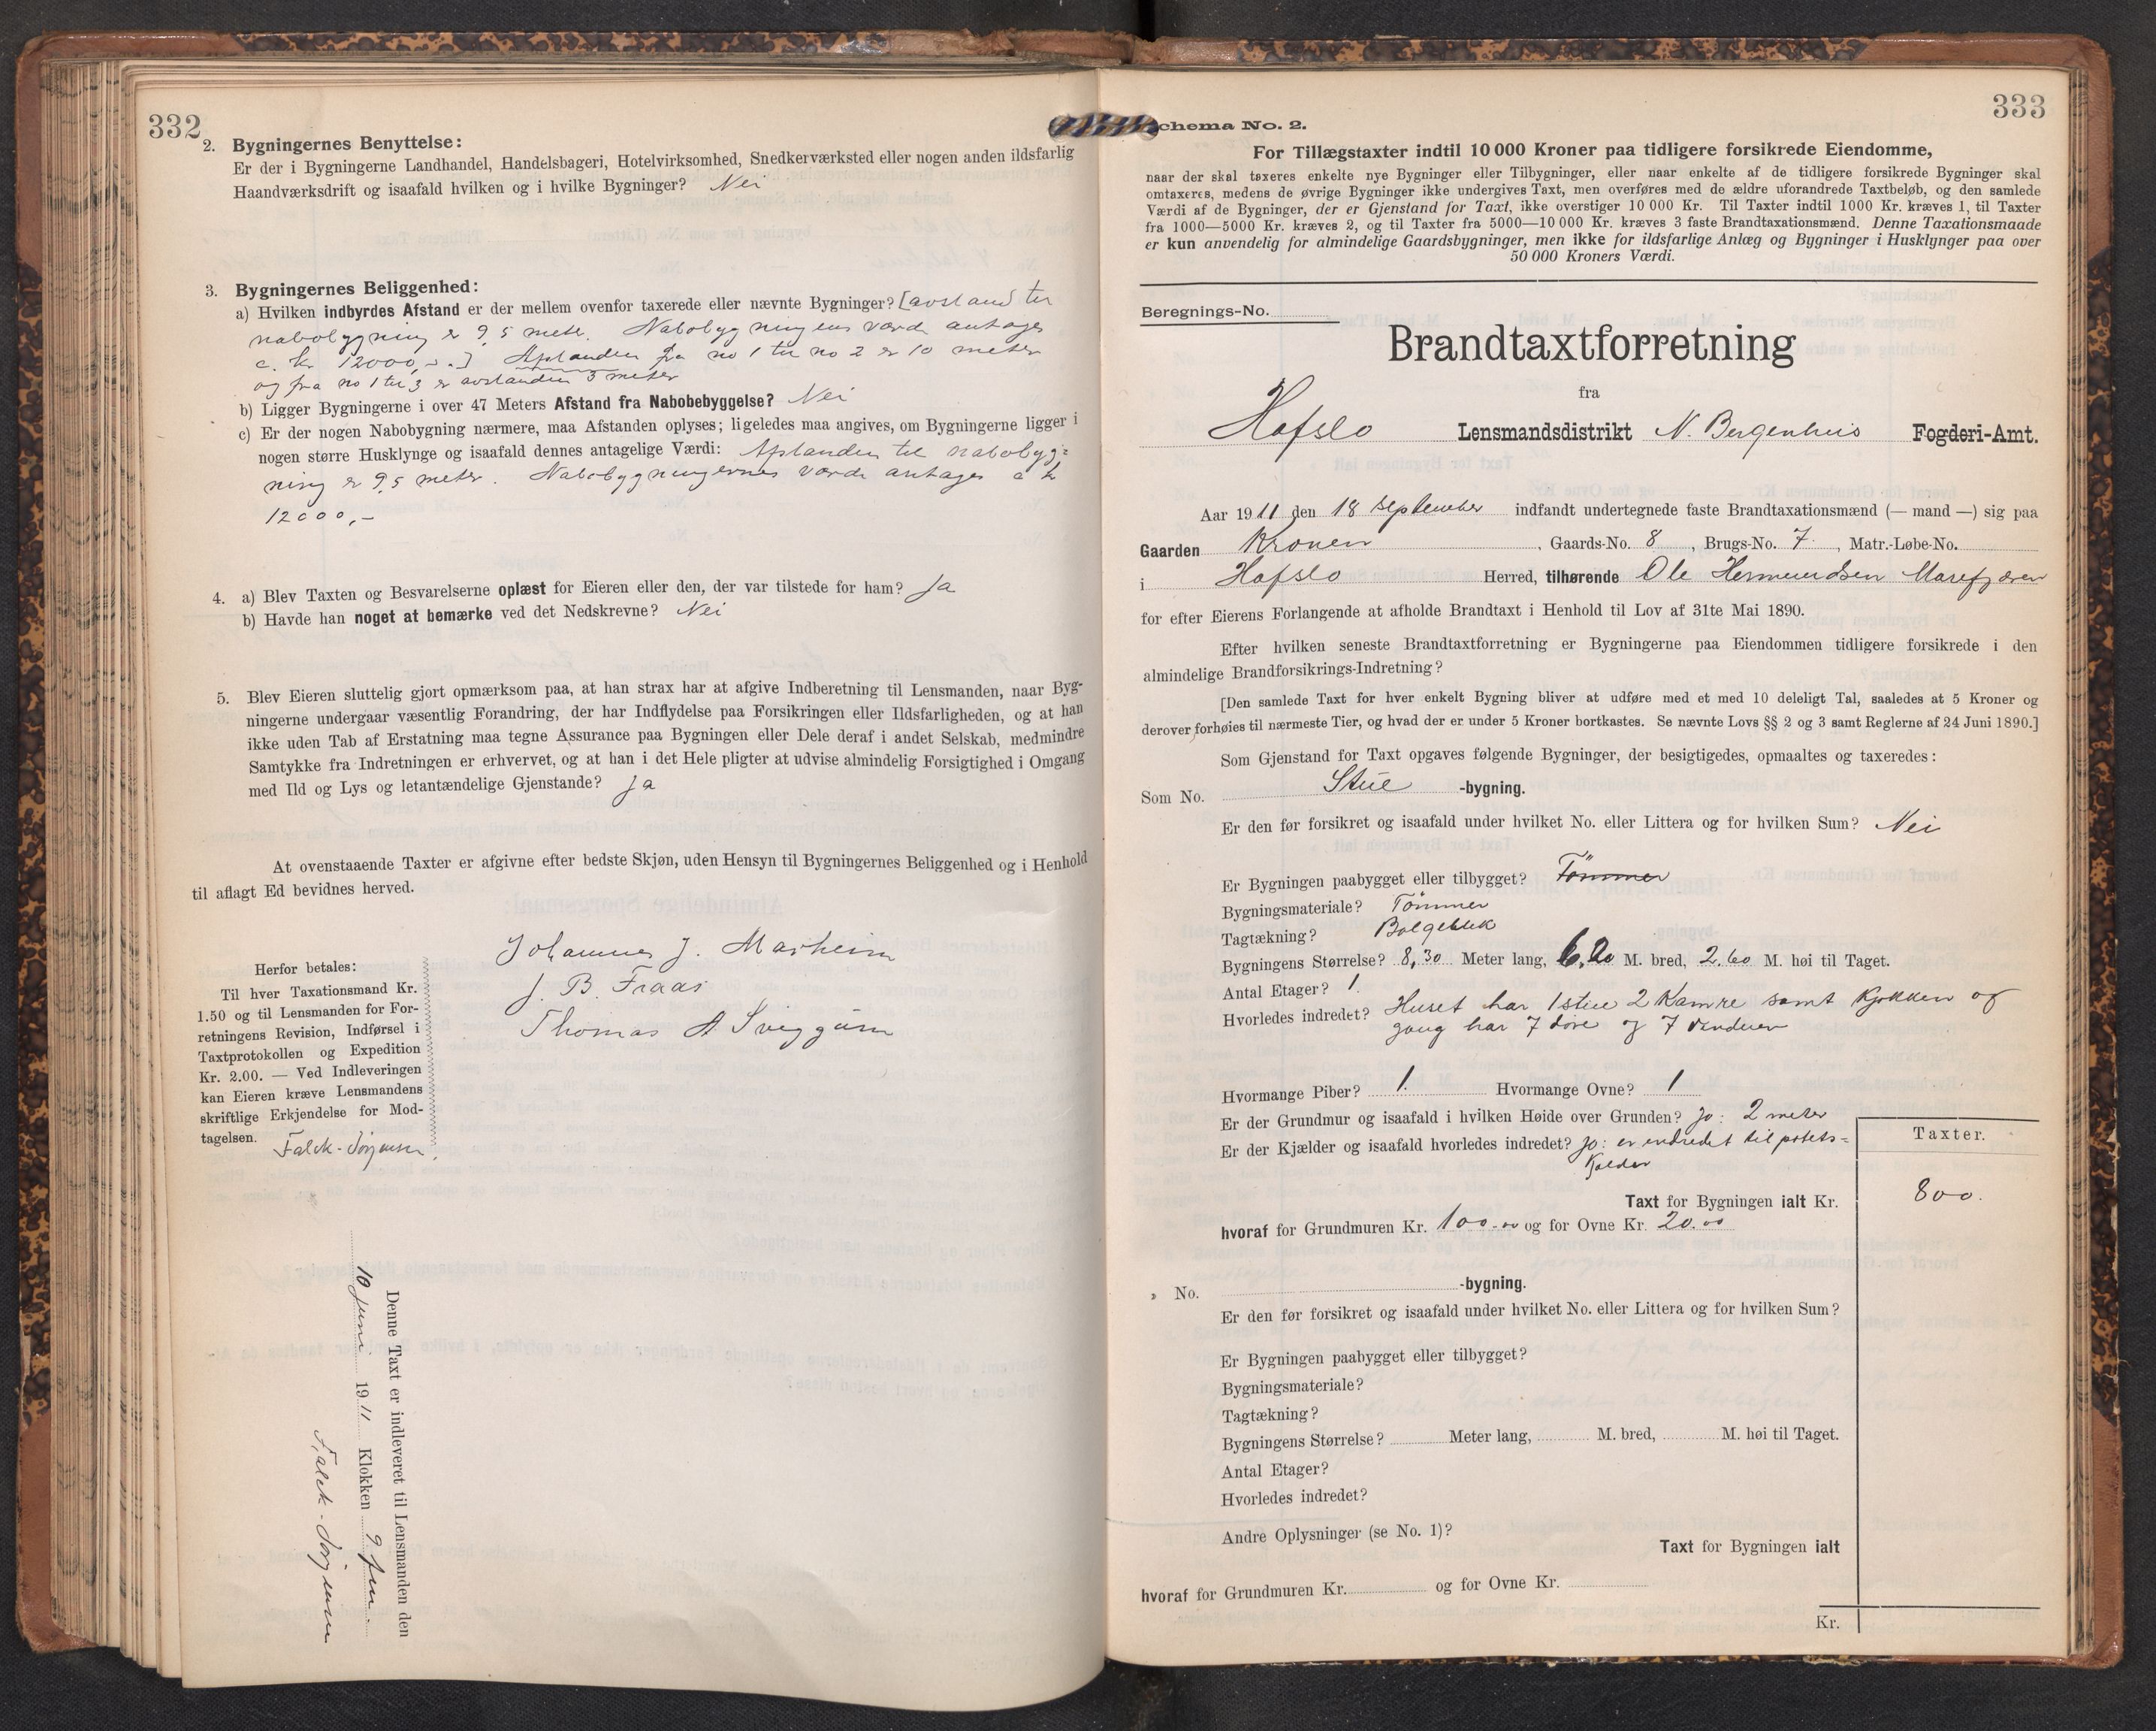 332
2. Bygningernes Benyttelse:
Er der i Bygningerne Landhandel, Handelsbageri, Hotelvirksomhed, Snedkerværksted eller nogen anden ildsfarlig
Haandværksdrift og isaafald hvilken og i hvilke Bygninger? Nei
3. Bygningernes Beliggenhed:
a) Hvilken indbyrdes Afstand er der mellem ovenfor taxerede eller nævnte Bygninger? [avstand til
nabobygning er 9,5 meter. Nabobygningens værdi antages
c. kr 12000,-.] Afstanden fra no 1 til no 2 er 10 meter
og fra no 1 til 3 er avstanden 3 meter
b) Ligger Bygningerne i over 47 Meters Afstand fra Nabobebyggelse? Nei
c) Er der nogen Nabobygning nærmere, maa Afstanden oplyses; ligeledes maa angives, om Bygningerne ligger i
nogen større Husklynge og isaafald dennes antagelige Værdi: Afstanden til nabobyg=
ning er 9,5 meter. Nabobygningernes værdi antages c kr
12000,-
4. a) Blev Taxten og Besvarelserne oplæst for Eieren eller den, der var tilstede for ham? Ja
b) Havde han noget at bemærke ved det Nedskrevne? Nei
5. Blev Eieren sluttelig gjort opmærksom paa, at han strax har at afgive Indberetning til Lensmanden, naar Byg-
ningerne undergaar væsentlig Forandring, der har Indflydelse paa Forsikringen eller Ildsfarligheden, og at han
ikke uden Tab af Erstatning maa tegne Assurance paa Bygningen eller Dele deraf i andet Selskab, medmindre
Samtykke fra Indretningen er erhvervet, og at han i det Hele pligter at udvise almindelig Forsigtighed i Omgang
med Ild og Lys og letantændelige Gjenstande? Ja
At ovenstaaende Taxter er afgivne efter bedste Skjøn, uden Hensyn til Bygningernes Beliggenhed og i Henhold
til aflagt Ed bevidnes herved.
Johannes J. Marheim
J. B. Fraas
Thomas A Sviggum
Herfor betales:
Til hver Taxationsmand Kr.
1.50 og til Lensmanden for For-
retningens Revision, Indførsel i
Taxtprotokollen og Expedition
Kr. 2.00. — Ved Indleveringen
kan Eieren kræve Lensmandens
skriftlige Erkjendelse for Mod-
tagelsen.
Falch-Jørgensen.
Denne Taxt er indleveret til Lensmanden den
10 Juni 1911 Klokken 9 fm.
Falch-Jørgensen
333
chema No. 2.
For Tillægstaxter indtil 10 000 Kroner paa tidligere forsikrede Eiendomme,
naar der skal taxeres enkelte nye Bygninger eller Tilbygninger, eller naar enkelte af de tidligere forsikrede Bygninger skal
omtaxeres, medens de øvrige Bygninger ikke undergives Taxt, men overføres med de ældre uforandrede Taxtbeløb, og den samlede
Værdi af de Bygninger, der er Gjenstand for Taxt, ikke overstiger 10 000 Kr. Til Taxter indtil 1000 Kr. kræves 1, til Taxter
fra 1000—5000 Kr. kræves 2, og til Taxter fra 5000—10 000 Kr. kræves 3 faste Brandtaxationsmænd. Denne Taxationsmaade
er kun anvendelig for almindelige Gaardsbygninger, men ikke for ildsfarlige Anlæg og Bygninger i Husklynger paa over
50 000 Kroners Værdi.
Beregnings-No.
Brandtaxtforretning
fra
Hafslo Lensmandsdistrikt N. Bergenhus Fogderi-Amt.
Aar 1911 den 18 september indfandt undertegnede faste Brandtaxationsmænd (— mand —) sig paa
Gaarden Kronen, Gaards-No. 8, Brugs-No. 7., Matr.-Løbe-No.
i Hafslo Herred, tilhørende Ole Hermundsen Marefjæren
for efter Eierens Forlangende at afholde Brandtaxt i Henhold til Lov af 31te Mai 1890.
Efter hvilken seneste Brandtaxtforretning er Bygningerne paa Eiendommen tidligere forsikrede i den
almindelige Brandforsikrings-Indretning?
[Den samlede Taxt for hver enkelt Bygning bliver at udføre med et med 10 deleligt Tal, saaledes at 5 Kroner og
derover forhøies til nærmeste Tier, og hvad der er under 5 Kroner bortkastes. Se nævnte Lovs §§ 2 og 3 samt Reglerne af 24 Juni 1890.]
Som Gjenstand for Taxt opgaves følgende Bygninger, der besigtigedes, opmaaltes og taxeredes:
Som No. Stue -bygning.
Er den før forsikret og isaafald under hvilket No. eller Littera og for hvilken Sum? Nei
Er Bygningen paabygget eller tilbygget? Tømmer
Bygningsmateriale? Tømmer
Tagtækning? Bølgeblik
Bygningens Størrelse? 8,30 Meter lang, 6,20 M. bred, 2.60 M. høi til Taget.
Antal Etager? 1.
Hvorledes indredet? Huset har 1 stue 2 Kamre samt Kjøkken og
gang har 7 døre og 7 vinduer
Hvormange Piber? 1. Hvormange Ovne? 1
Er der Grundmur og isaafald i hvilken Høide over Grunden? Jo: 2 meter
Er der Kjælder og isaafald hvorledes indredet? Jo: er indredet til potets=
Kjelder
Taxter.
Taxt for Bygningen ialt Kr. 800.
hvoraf for Grundmuren Kr. 100.00 og for Ovne Kr. 20.00
» No. -bygning.
Er den før forsikret og isaafald under hvilket No. eller Littera og for hvilken Sum?
Er Bygningen paabygget eller tilbygget?
Bygningsmateriale?
Tagtækning?
Bygningens Størrelse? Meter lang, M. bred, M. høi til Taget.
Antal Etager?
Hvorledes indredet?
Andre Oplysninger (se No. 1)?
Taxt for Bygningen ialt
hvoraf for Grundmuren Kr. og for Ovne Kr.
Kr.